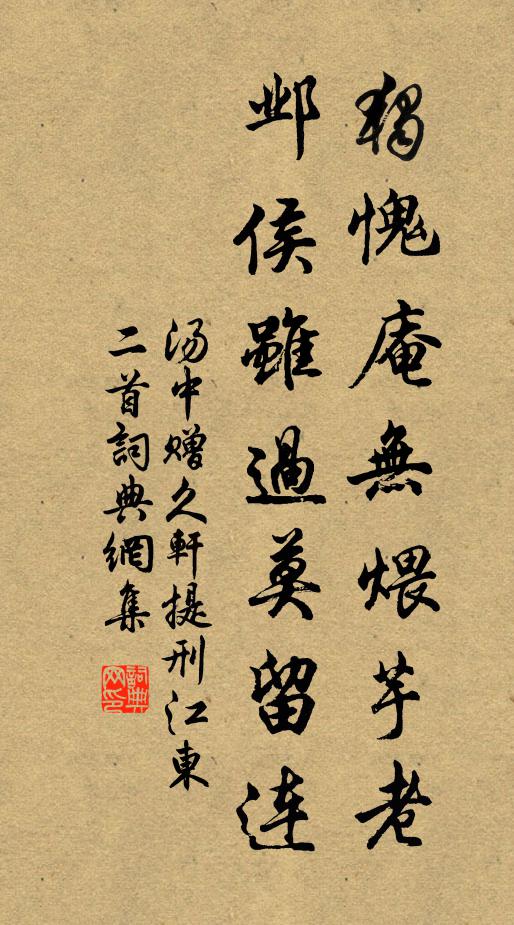 獨愧庵無煨芋老
邺侯雖過莫留连
汤中赠久軒提刑江東
二首詞典網集
詞典
网印